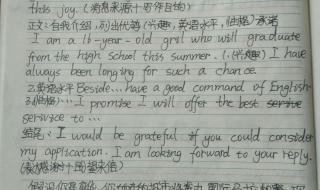 this joy. (消息来源+写作目的)
正文:自我介绍,列出优势(兴趣,英语水平,性格)承诺
I am a 16-year-old gril who will graduate
from the high school this summer. 1.(兴趣) I have
always been longing for such a chance.
2.英语水平 Beside... have a good command of English
3.(性格)... I promise I will offer the best
service to...
结尾: I would be grateful if you could consider
my application. I am looking forward to your reply.